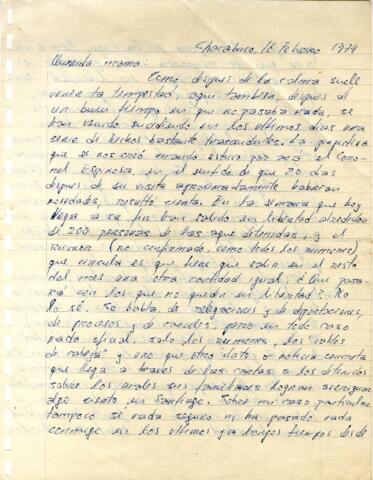 Chacabuco, 16 Febrero 1974
Querida mamá:
Como después de la calma suele
venir la tempestad, aquí también, después de
un buen tiempo en que no pasaba nada, se
han venido sucediendo en los últimos días una
serie de hechos bastante trascendentes. La perspectiva
que se nos creó cuando estuvo por acá el Coro-
nel Espinosa, en el sentido de que 20 días
después de su visita aproximadamente habrían
novedades, resultó cierta. En la semana que hoy
llega a su fin han salido en libertad alrededor
de 200 personas de las aquí detenidas, y el
rumor (no confirmado, como todos los rumores)
que circula es que tiene que salir en el resto
del mes una otra cantidad igual; ¿Qué pasa-
rá con los que no quedan en libertad? No
lo sé. Se habla de relegaciones y de deportaciones,
de procesos y de cárceles, pero en todo caso
nada oficial, solo los rumores, los "cables
de cabeza" y uno que otro dato o noticia concreta
que llega a través de las cartas a los detenidos
sobre los cuales sus familiares logran averiguar
algo cierto en Santiago. Sobre mi caso particular
tampoco sé nada seguro ni ha pasado nada
conmigo en los últimos ya largos tiempos desde